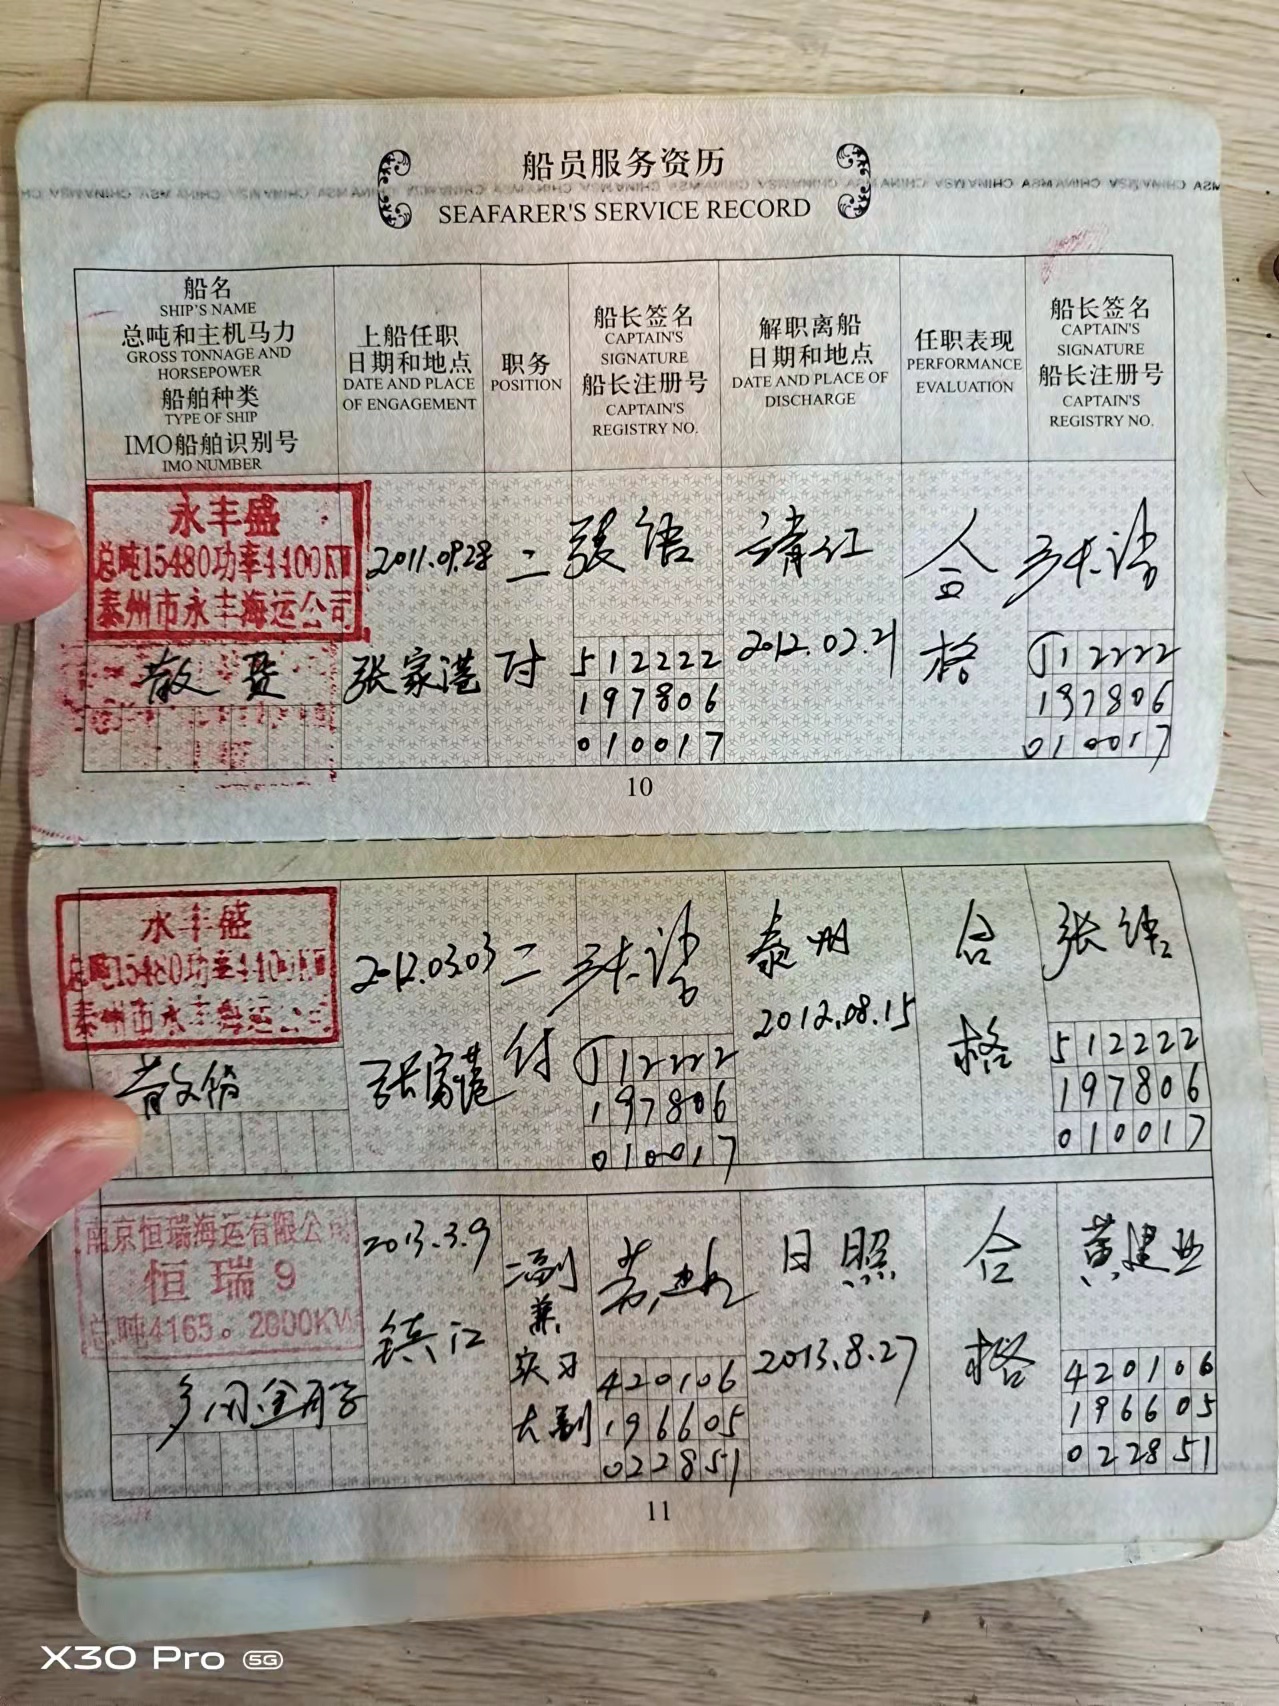 船员服务资历
SEAFARER'S SERVICE RECORD
船名
SHIP'S NAME
总吨和主机马力
GROSS TONNAGE AND
HORSEPOWER
船舶种类
TYPE OF SHIP
IMO船舶识别号
IMO NUMBER
上船任职
日期和地点
DATE AND PLACE
OF ENGAGEMENT
职务
POSITION
船长签名
CAPTAIN'S
SIGNATURE
船长注册号
CAPTAIN'S
REGISTRY NO.
解职离船
日期和地点
DATE AND PLACE OF
DISCHARGE
任职表现
PERFORMANCE
EVALUATION
船长签名
CAPTAIN'S
SIGNATURE
船长注册号
CAPTAIN'S
REGISTRY NO.
永丰盛
总吨15480功率4400KW
泰州市永丰海运公司
散货
2011.09.28
张家港
二
付
512222
197806
010017
靖江
2012.02.21
合
格
512222
197806
010017
10
永丰盛
总吨15480功率4400KW
泰州市永丰海运公司
散货船
2012.03.03
张家港
二
付
512222
197806
010017
泰州
2012.08.15
合
格
512222
197806
010017
南京恒瑞海运有限公司
恒瑞9
总吨4165。2000KW
多用途船
2013.3.9
镇江
二副
兼
实习
大副
420106
196605
022851
日照
2013.8.27
合
格
黄建业
420106
196605
022851
11
X30 Pro 5G